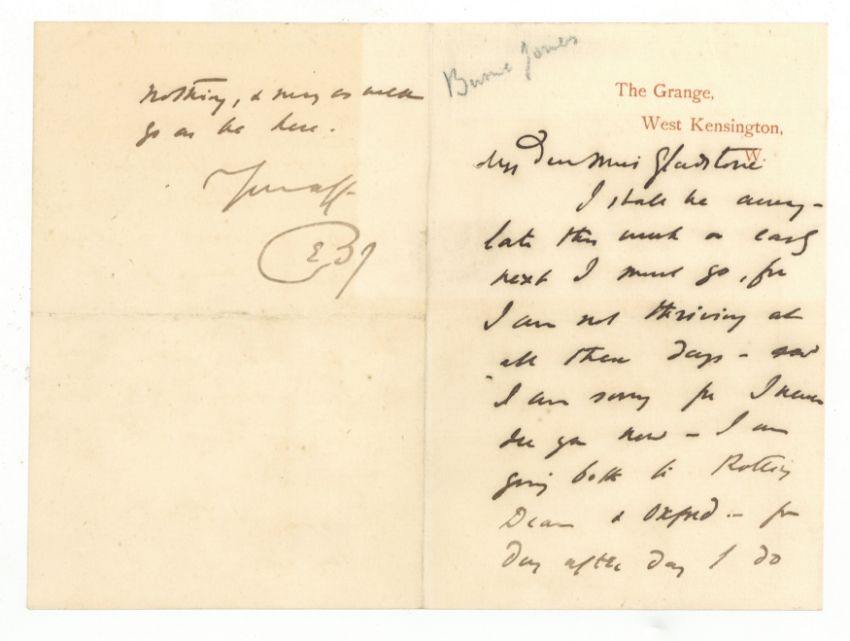 Burne Jones
The Grange,
West Kensington,
W.
My Dear Miss Gladstone
I shall be away -
late this week or early
next I must go, for
I am not thriving at
all these days - and
I am sorry for I never
see you now - I am
going both to Rotting
Dean & Oxford - for
Day after Day I do
nothing, & may as well
go as be here.
Your aff
EBJ